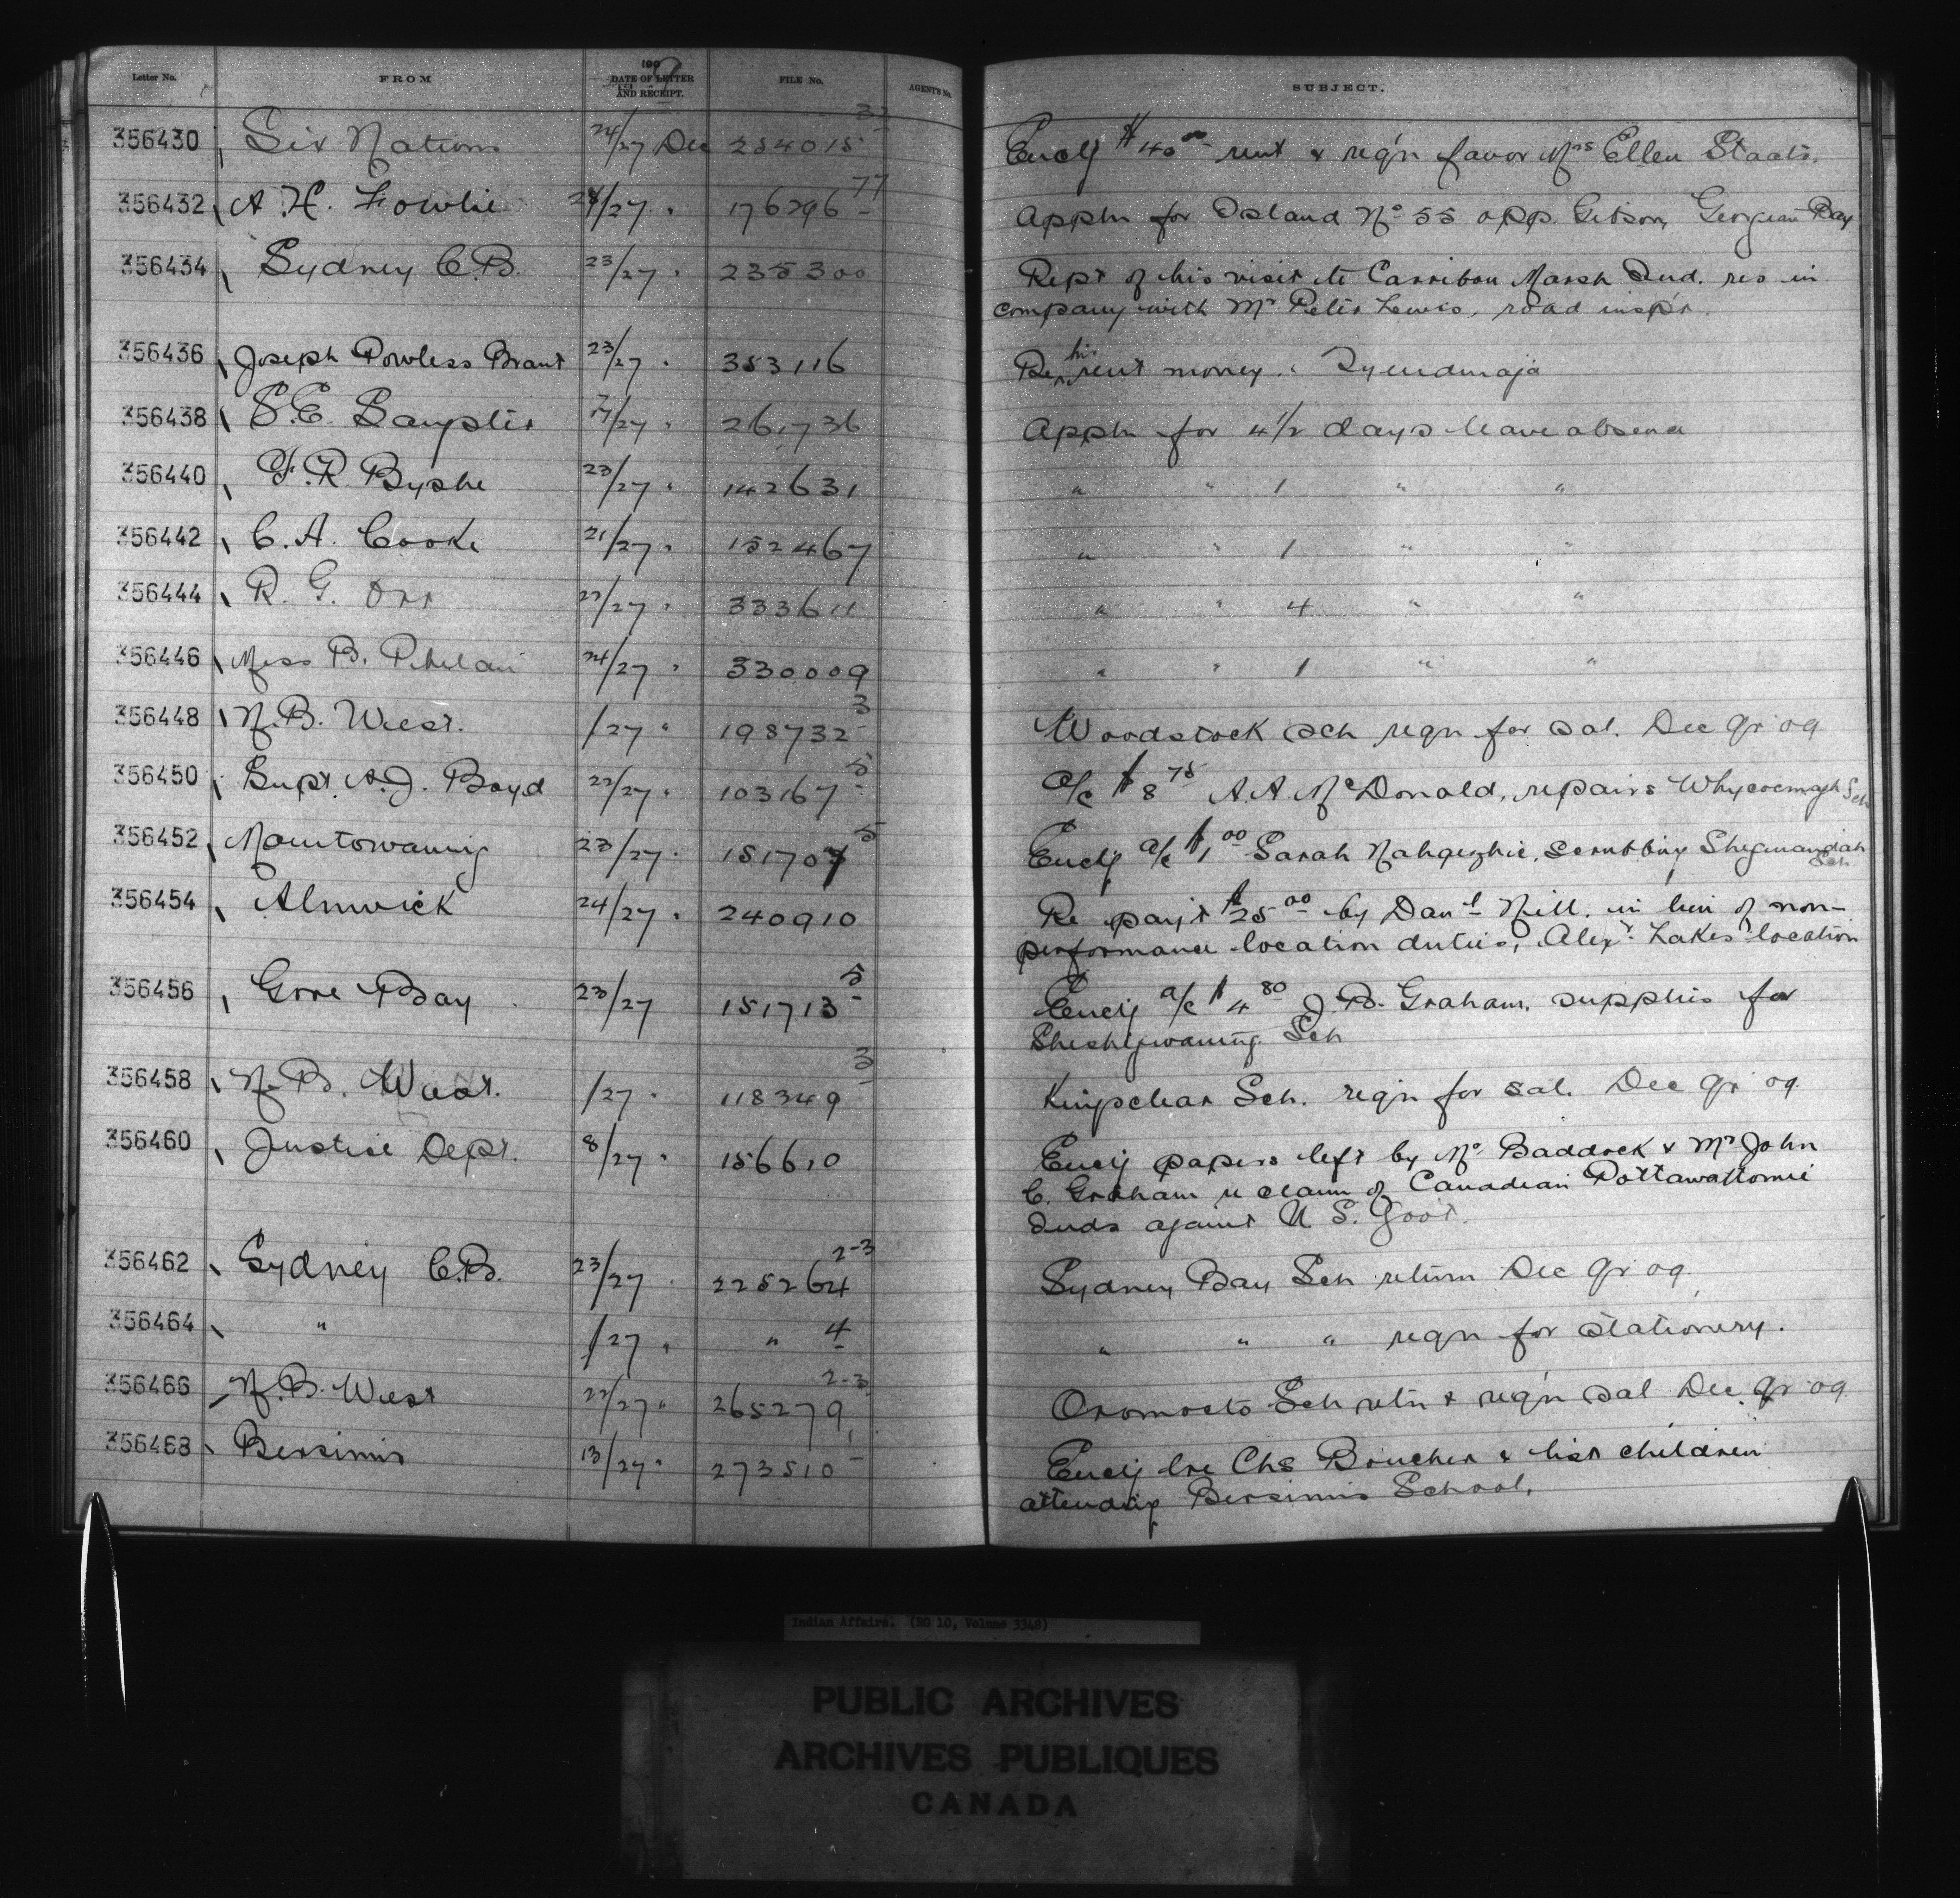 Letter No. FROM 190 9 DATE OF LETTER AND RECEIPT. FILE No. AGENT'S No. SUBJECT.
356430 Six Nations 24/27 Dec 254015 - 32 Encl'g $40.00 rent & reg'n favor Mrs Ellen Staats.
356432 A. H. Fowlie 24/27 " 176296 - 77 Appln for Island No 55 opp. Gibson, Georgian Bay
356434 Sydney C.B. 23/27 " 235300 Rept of his visit to Carribou Marsh Ind. res in
company with Mr Peter Lewis, road insp'r.
356436 Joseph Powless Brant 23/27 " 353116 Re his rent money. Tyendinaja
356438 /27 " 261736 Appln for 4 1/2 days leave absence
356440 F. R. Byshe 23/27 " 142631 " " 1 " "
356442 C. A. Cooke 21/27 " 152467 " " 1 " "
356444 R. G. Orr 22/27 " 333611 " " 4 " "
356446 Miss B. Phelan 24/27 " 330009 " " 1 " "
356448 N. B. West. /27 " 198732 - 3 Woodstock Sch reqn for sal. Dec qr 09
356450 Supt. A. J. Boyd 22/27 " 103167 - 5 a/c $8.75 A. A. McDonald, repairs Whycocmagh Sch
356452 Manitowaning 23/27 " 151707 5 Encl'g a/c $1.00 Sarah Nahgezhic, scrubbing Shegwandah Sch
356454 Alnwick 24/27 " 240910 Re pay't $25.00 by Danl Nill. in lieu of non-
performance location duties, Alexr. Lakes' location
356456 Gore Bay 23/27 151713 - 5 Encl'g a/c $4.80 J. B. Graham, supplies for
Sheshegwaning Sch
356458 N. B. West. /27 " 118349 - 3 Kingsclear Sch. reqn for sal. Dec qr 09.
356460 Justice Dept. 8/27 " 156610 Encl'g papers left by Mr Baddock & Mr John
C. Graham re claim of Canadian Pottawattomie
Inds against U. S. Govt.
356462 Sydney C.B. 23/27 " 225264 2-3 Sydney Bay Sch return Dec qr 09.
356464 " /27 " " 4 " " " reqn for stationery.
356466 N. B. West 22/27 " 265279 2-3 Oromocto Sch retn & req'n sal Dec qr 09
356468 Bersimis 13/27 " 273510 - Encl'g lre Chs Boucher & list children
attending Bersimis School.
Indian Affairs. (RG 10, Volume 3348)
PUBLIC ARCHIVES
ARCHIVES PUBLIQUES
CANADA